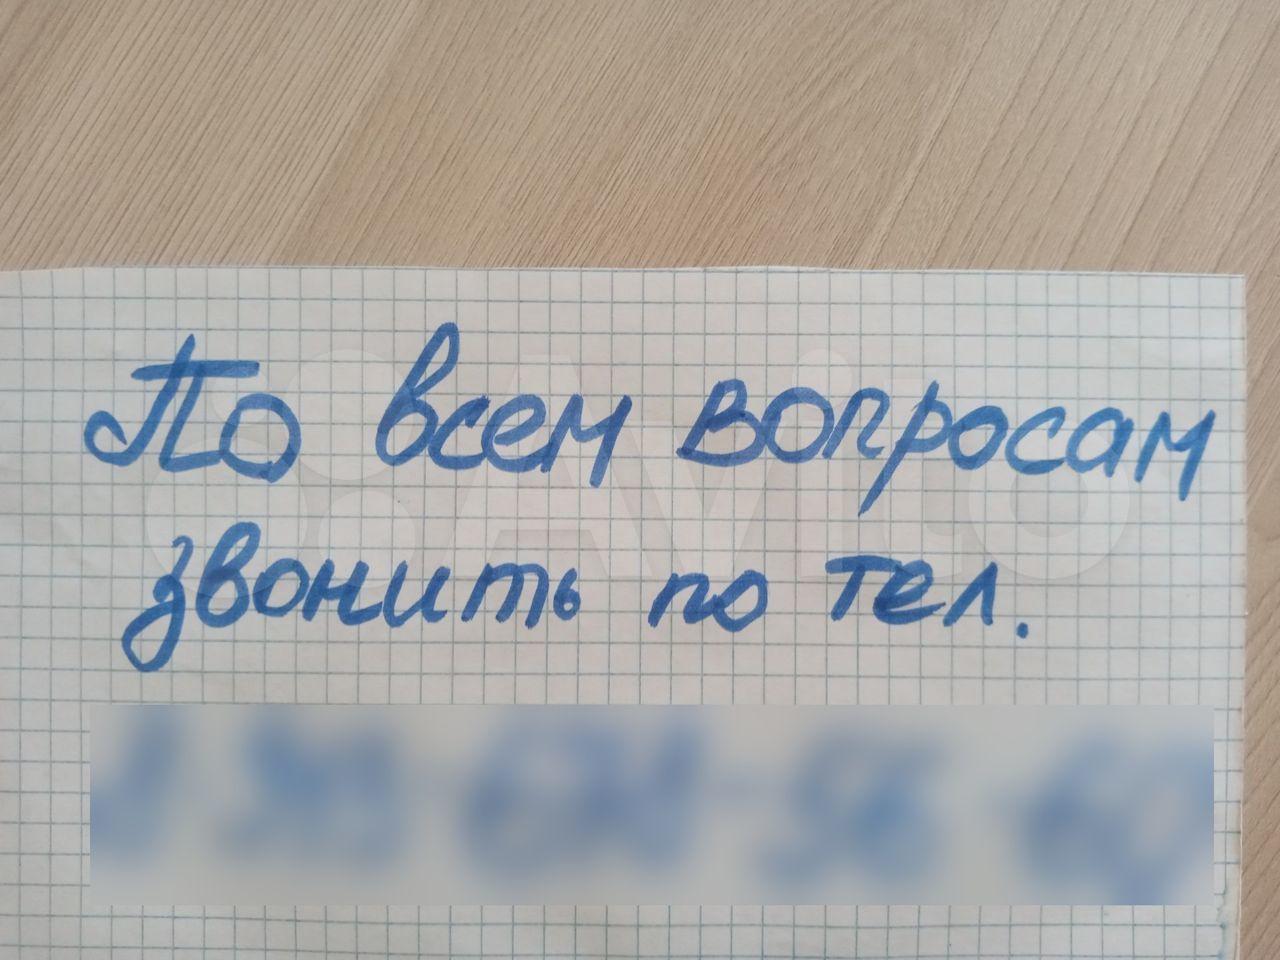 По всем вопросам
звонить по тел.
Avito